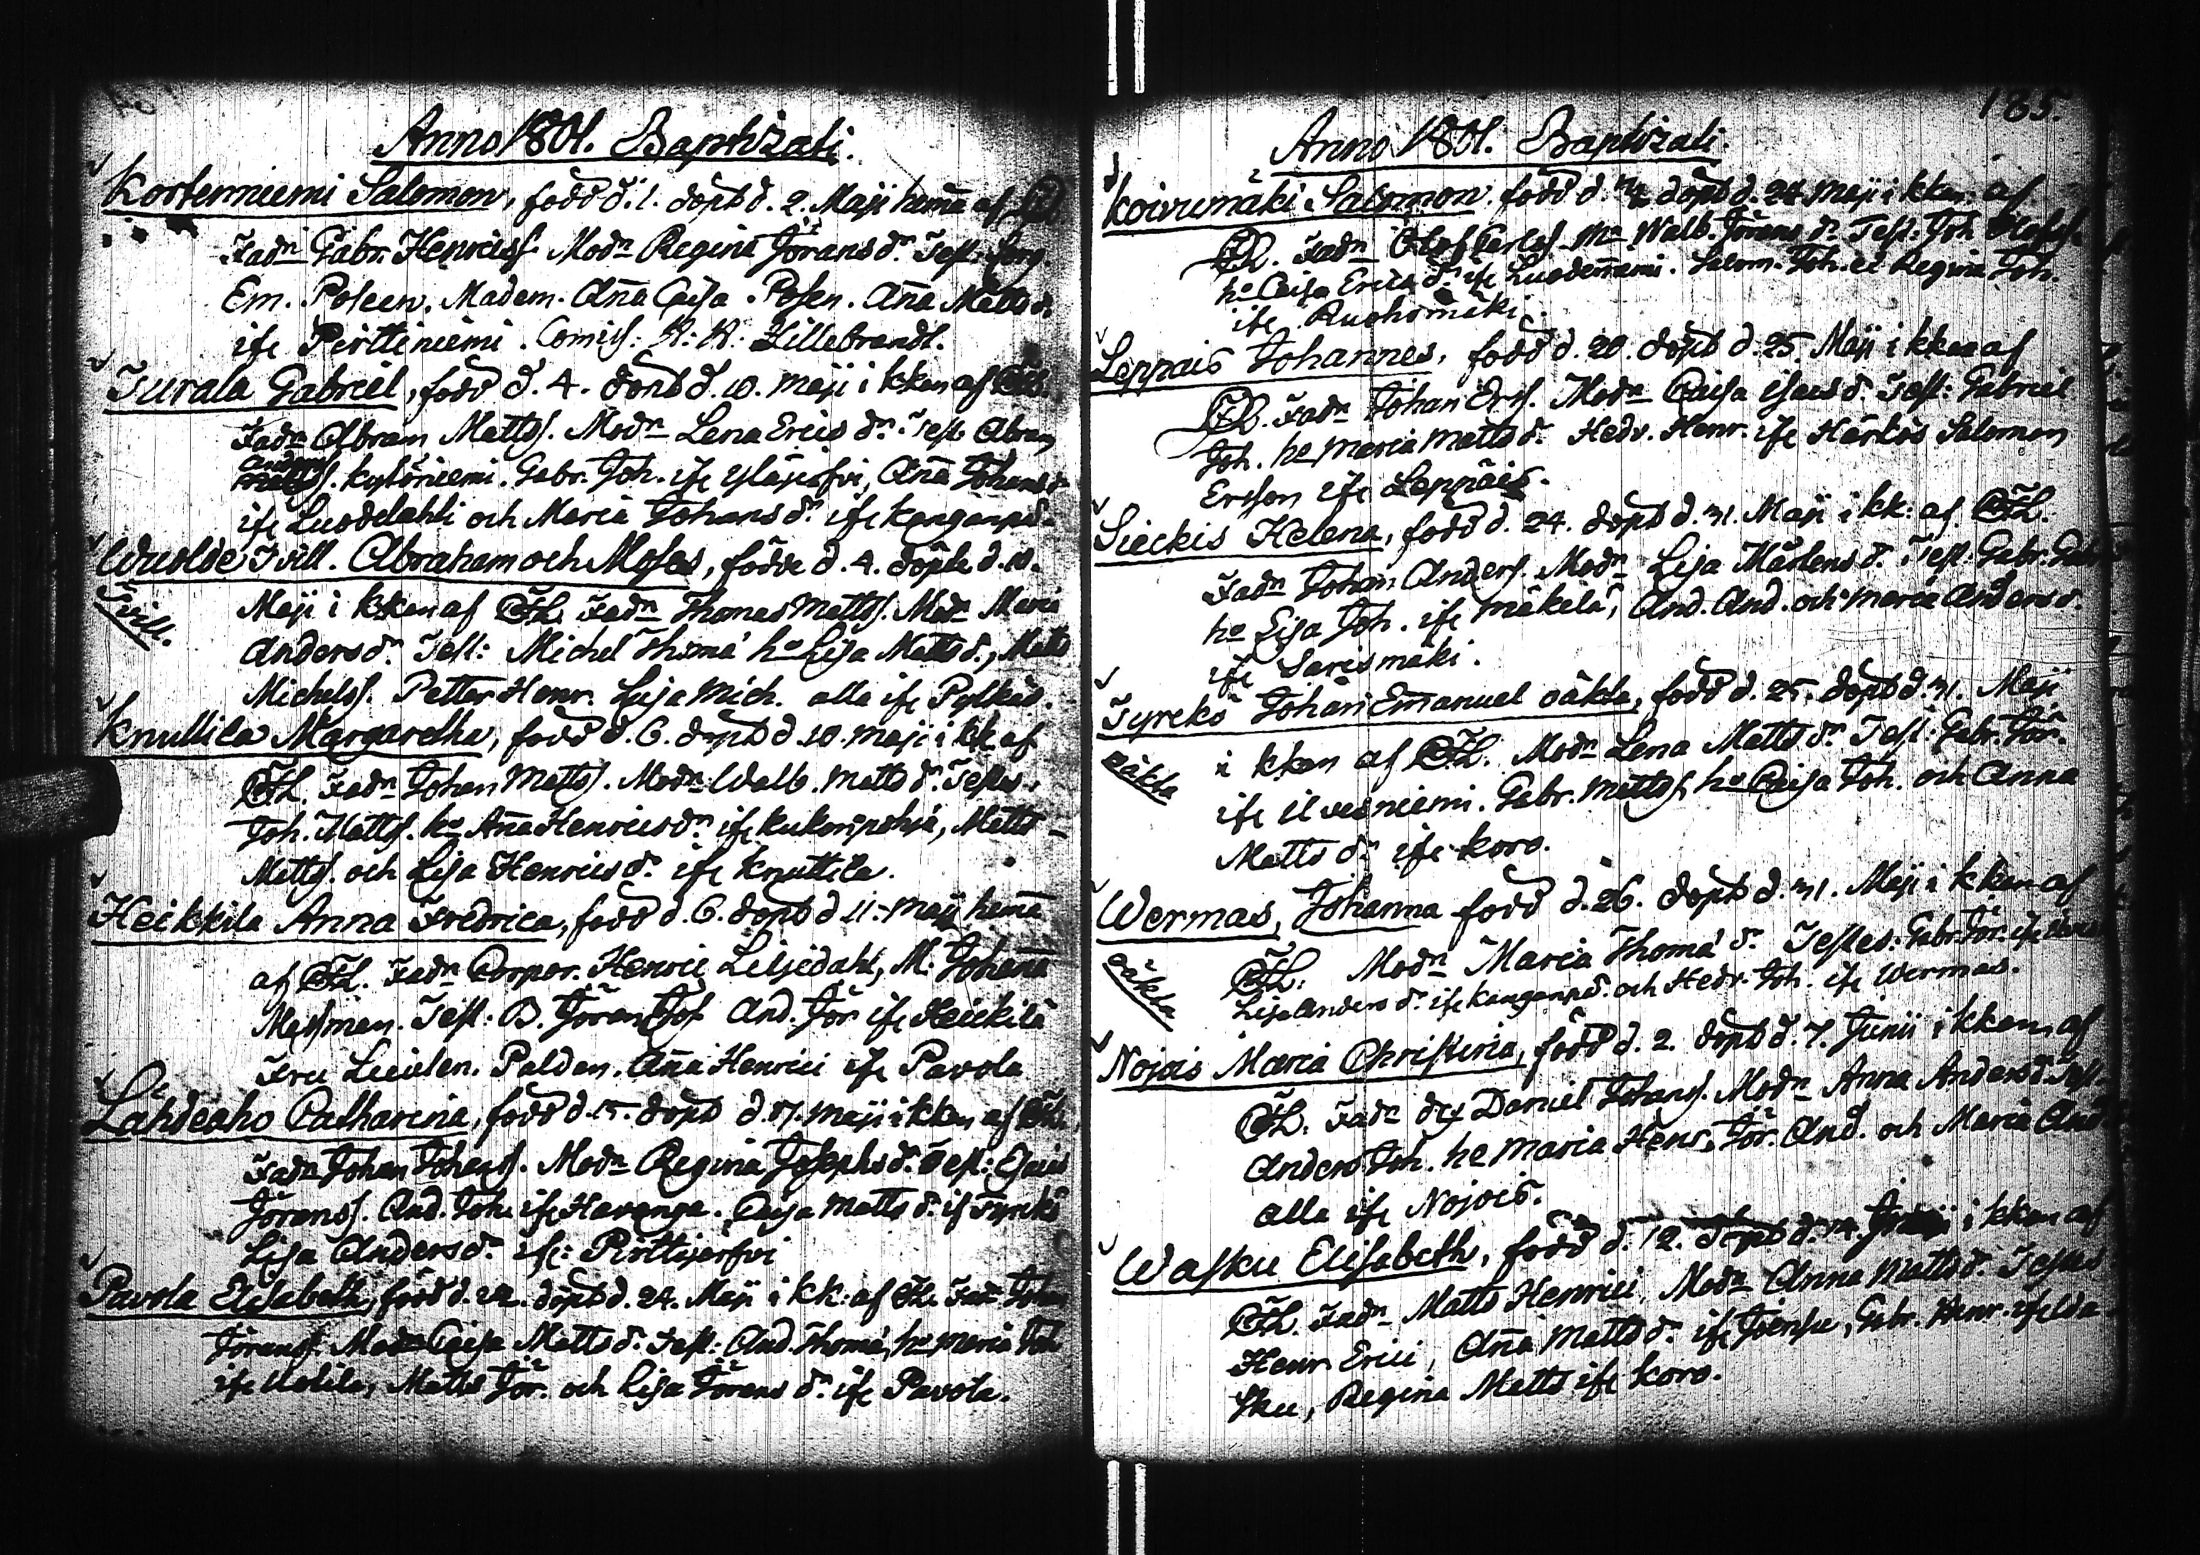 Anno 1801. Baptizati.
Kortenniemi Salomon, född d. 1. döpt d. 2. Maji hema af
Fadn Gabr. Henricss. Modn Regina Jörans dr. Test:
Em. Poleen. Madam. Aña Caisa. Posen. Aña Matts dr
ife Pirttiniemi. Comiss: A. A. Hillebrandt.
Turala Gabriel, född d. 4. döpt d. 10. Maji i kkan af CHL.
Fadn Abram Mattss. Modn Lena Erics dr. Test. Abram
Anderss. Kylöniemi. Gabr. Joh. ife Yläjerfvi, Aña Johans dr
ife Luodelahti och Maria Johans dr ife Kanganpä.
Wuolde Tvill. Abraham och Moses, födde d. 4. döpte d. 10.
Tvill.
Maji i kkan af CHL. Fadn Thomas Mattss. Modn Maria
Anders dr. Test: Michel Thomæ ho Lisa Matts dr, Matts
Michelss. Petter Henr. Lisa Mich. alla ife Pylkäs.
Knuttila Margaretha, född d. 6. döpt d 10. Maji i kk af
CHL. Fadn Johan Mattss. Modn Walb. Matts dr. Testes:
Joh. Mattss. ho Aña Henrics dr ife Kukonpohja, Matts
Mattss. och Lisa Henrics dr. ife Knuttila.
Heikkila Anna Fredrica, född d. 6. döpt d 11. Maji hema
af CHL. Fadn Corpor. Henric Liljedahl, M. Johaña
Messman. Test: B. Jöran Jos And. Jör ife Heickilä
Fru Lieuten. Paldan. Aña Henrici ife Pavola
Lahdeaho Catharina, född d. 15. döpt d. 17. Maji i kkan af CHL
Fadn Johan Johanss. Modn Regina Josephs dr. Test: Esaias
Jöranss. And. Joh. ife Havanga. Caisa Matts dr. if Tyrckö
Lisa Anders dr. ife: Pirttijerfvi
Pavola Elisabeth, född d. 22. döpt d. 24. Maji i kk: af CHL. Fadn Johan
Jöranss. Modn Caisa Matts dr. Test: And. Thomæ, ho Maria Joh
ife Uotila, Matts Jör. och Lisa Jörans dr. ife Pavola.
185.
Anno 1801. Baptizati.
Koivumäki Salomon. född d. döpt d. 24 Maji i kkan af
CHL. Fadn Olof Carlss. Mn Walb. Jörans dr Test: Joh. Olofss.
ho Caisa Erics dr ife Luodenñemi. Salom. Joh. et Regina Joh.
ife Ruohomäki.
Leppais Johannes, född d. 20. döpt d. 25. Maji i kkan af
CHL. Fadn Johan Erss. Modn Caisa Esaias d. Test: Gabriel
Joh. ho Maria Matts dr. Hedv. Henr. ife Härkös Salomon
Ersson ife Leppäis.
Sieckis Helena, född d. 24. döpt d. 31. Maji i kk: af CHL.
Fadn Johan Anderss. Modn Lisa Mårtens dr. Test: Gabr.
ho Lisa Joh. ife Mäkelä, And. And. och Maria Anders d.
ife Sarismäki.
Tyrckö Johañ Emanuel oäkta, född d. 25. döpt d. 31. Maji
oäkta
i kkan af CHL. Modn Lena Matts dr. Test: Gabr. Jör.
ife Ilvesniemi. Gabr. Mattss. ho Caisa Joh. och Anna
Matts dr ife Koro.
Wermas, Johanna född d. 26. döpt d. 31. Maji i kkan af
oäkta
CHL. Modn Maria Thomæ dr. Testes: Gabr. Jör. ife
Lisa Anders dr. ife Kanganpä. och Hedv. Joh. ife Wermas.
Nojois Maria Christina, född d. 2. döpt d. 7. Junii i kkan af
CHL. Fadn Daniel Johanss. Modn Anna Anders dr. Test.
Anders Joh. ho Maria Henr, Jör. And. och Maria And.
alla ife Nojois.
Wasku Elisabeth, född d. 12. döpt d. 14. i kkan af
CHL. Fadn Matts Henrici, Modn Anna Matts dr. Testes
Henr. Erici, Aña Matts dr. ife Joensu, Gabr. Henr. ife Wa
sku, Regina Matts ife Koro.